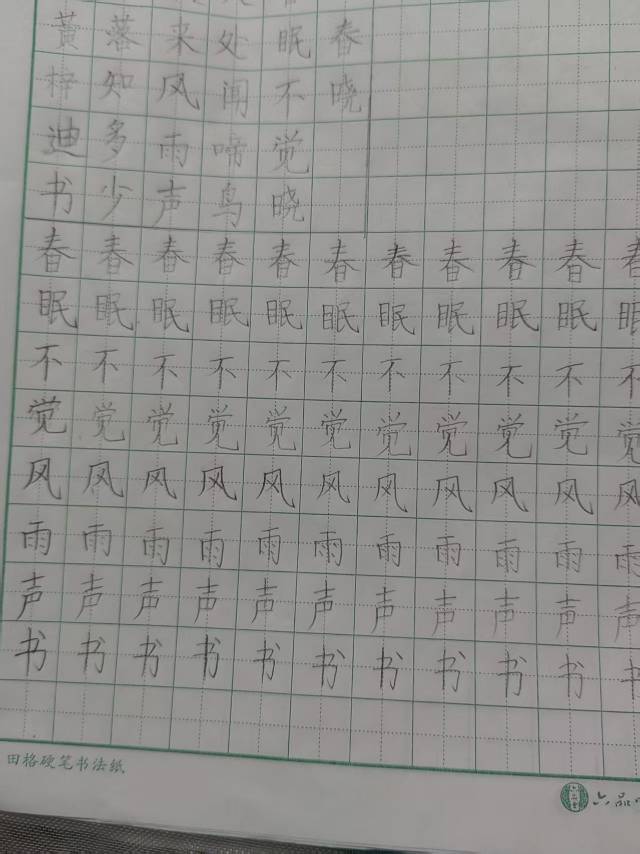 春晓
眠不觉晓
处闻啼鸟
来风雨声
落知多少
黄梓迪书
春春春春春春春春春春春
眠眠眠眠眠眠眠眠眠眠眠
不不不不不不不不不不不
觉觉觉觉觉觉觉觉觉觉觉
风风风风风风风风风风风
雨雨雨雨雨雨雨雨雨雨雨
声声声声声声声声声声声
书书书书书书书书书书书
田格硬笔书法纸
六品